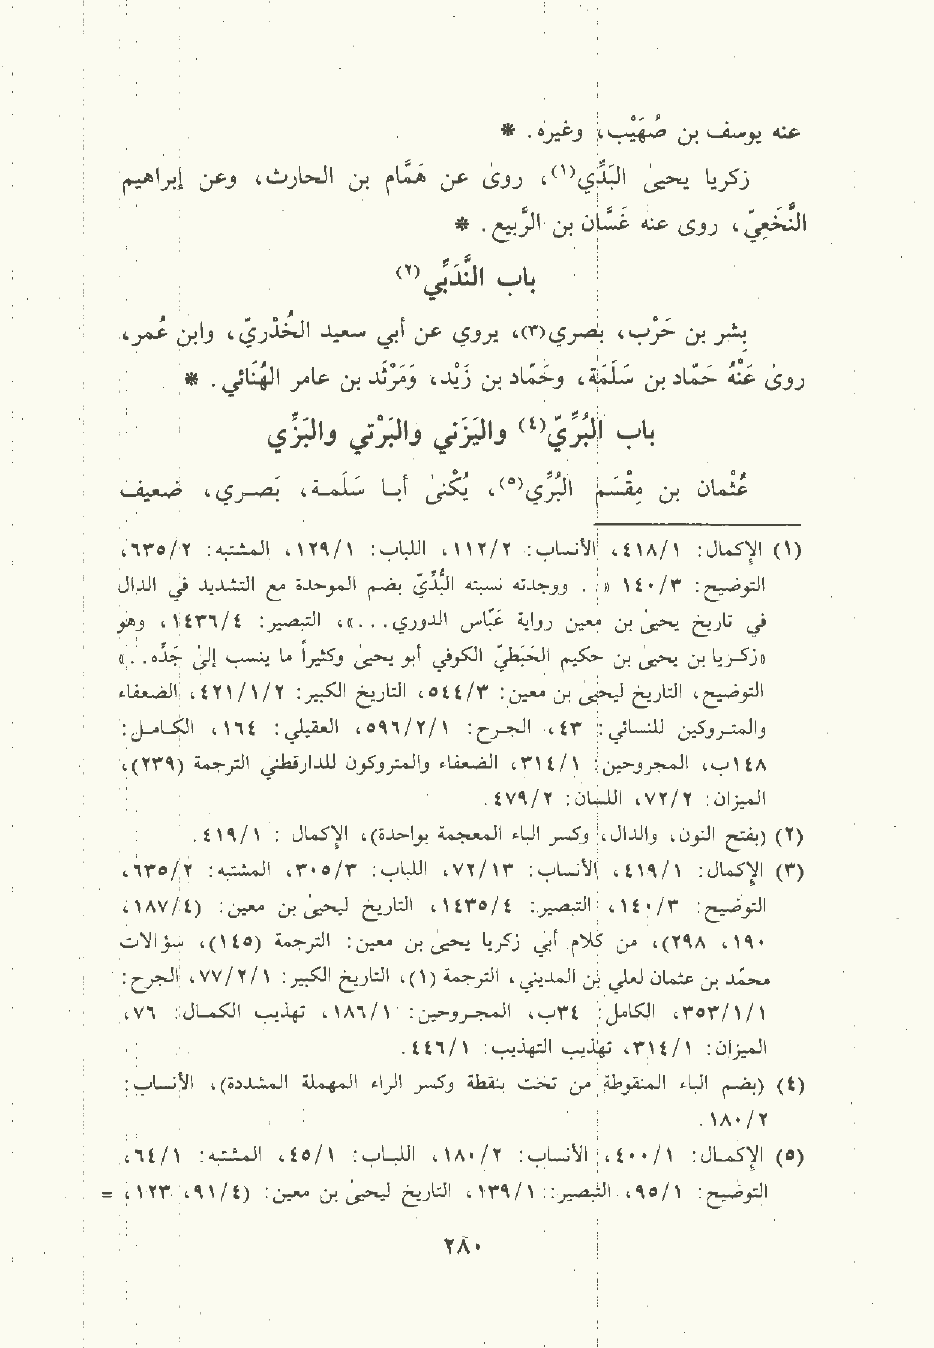 عنه يوسف بن صُهَيْب، وغيره. *
زكريا يحيىٰ البَدِّي(١)، روى عن هَمَّام بن الحارث، وعن إبراهيم
النَّخَعِيّ، روى عنه غَسَّان بن الرَّبيع. *
باب النَّدَبِّي(٢)
بِشر بن حَرْب، بصري(٣)، يروي عن أبي سعيد الخُدْريّ، وابن عُمر،
روىٰ عَنْهُ حَمَّاد بن سَلَمَة، وحَمَّاد بن زَيْد، ومَرْثَد بن عامر الهُنَائي. *
باب البُرِّيّ(٤) واليَزَني والبَرْتي والبَزِّي
عُثْمان بن مِقْسَم البُرِّي(٥)، يُكْنىٰ أبا سَلَمة، بَصَري، ضعيف
(١) الإكمال: ٤١٨/١، الأنساب: ١١٢/٢، اللباب: ١٢٩/١، المشتبه: ٦٣٥/٢،
التوضيح: ١٤٠/٣ «. ووجدته نسبته البُدِّيّ بضم الموحدة مع التشديد في الدال
في تاريخ يحيىٰ بن معين رواية عَبَّاس الدوري...»، التبصير: ١٤٣٦/٤، وهو
«زكريا بن يحيىٰ بن حكيم الحَبَطيّ الكوفي أبو يحيىٰ وكثيراً ما ينسب إلىٰ جَدِّه..»
التوضيح، التاريخ ليحيىٰ بن معين: ٥٤٤/٣، التاريخ الكبير: ٤٢١/١/٢، الضعفاء
والمتروكين للنسائي: ٤٣، الجرح: ٥٩٦/٢/١، العقيلي: ١٦٤، الكامل:
١٤٨ب، المجروحين: ٣١٤/١، الضعفاء والمتروكون للدارقطني الترجمة (٢٣٩)،
الميزان: ٧٢/٢، اللسان: ٤٧٩/٢.
(٢) (بفتح النون، والدال، وكسر الباء المعجمة بواحدة)، الإكمال : ٤١٩/١.
(٣) الإكمال: ٤١٩/١، الأنساب: ٧٢/١٣، اللباب: ٣٠٥/٣، المشتبه: ٦٣٥/٢،
التوضيح: ١٤٠/٣، التبصير: ١٤٣٥/٤، التاريخ ليحيىٰ بن معين: (١٨٧/٤،
١٩٠، ٢٩٨)، من كلام أبي زكريا يحيىٰ بن معين: الترجمة (١٤٥)، سؤالات
محمَّد بن عثمان لعلي بن المديني، الترجمة (١)، التاريخ الكبير: ٧٧/٢/١، الجرح:
٣٥٣/١/١، الكامل: ٣٤ب، المجروحين: ١٨٦/١، تهذيب الكمال: ٧٦،
الميزان: ٣١٤/١، تهذيب التهذيب: ٤٤٦/١.
(٤) (بضم الباء المنقوطة من تحت بنقطة وكسر الراء المهملة المشددة)، الأنساب:
١٨٠/٢.
(٥) الإكمال: ٤٠٠/١، الأنساب: ١٨٠/٢، اللباب: ٤٥/١، المشتبه: ٦٤/١،
التوضيح: ٩٥/١، التبصير: ١٣٩/١، التاريخ ليحيىٰ بن معين: (٩١/٤، ١٢٣، =
٢٨٠